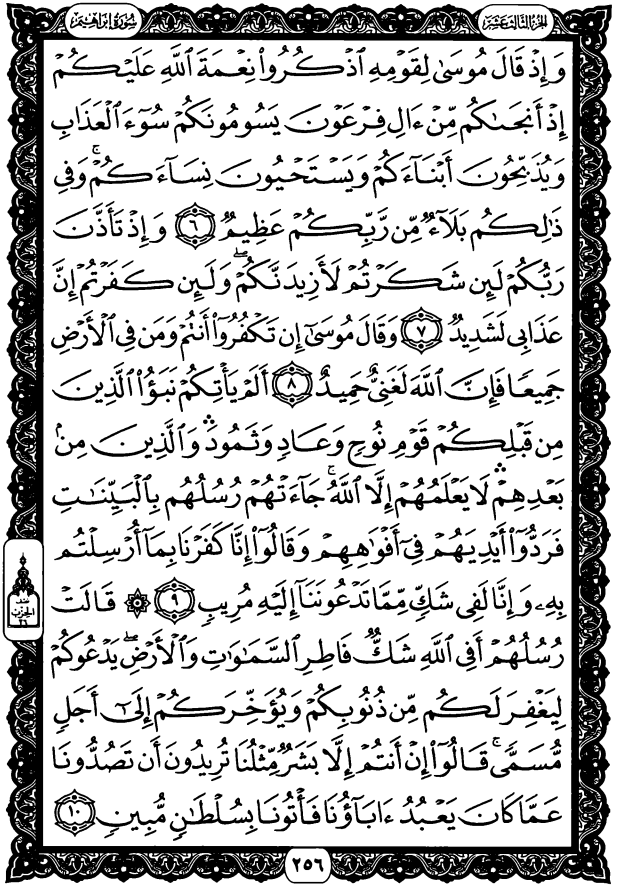 الجزء الثالث عشر
سورة إبراهيم
وَإِذْ قَالَ مُوسَىٰ لِقَوْمِهِ ٱذْكُرُوا۟ نِعْمَةَ ٱللَّهِ عَلَيْكُمْ
إِذْ أَنجَىٰكُم مِّنْ ءَالِ فِرْعَوْنَ يَسُومُونَكُمْ سُوٓءَ ٱلْعَذَابِ
وَيُذَبِّحُونَ أَبْنَآءَكُمْ وَيَسْتَحْيُونَ نِسَآءَكُمْ ۚ وَفِى
ذَٰلِكُم بَلَآءٌ مِّن رَّبِّكُمْ عَظِيمٌ ٦ وَإِذْ تَأَذَّنَ
رَبُّكُمْ لَئِن شَكَرْتُمْ لَأَزِيدَنَّكُمْ ۖ وَلَئِن كَفَرْتُمْ إِنَّ
عَذَابِى لَشَدِيدٌ ٧ وَقَالَ مُوسَىٰٓ إِن تَكْفُرُوٓا۟ أَنتُمْ وَمَن فِى ٱلْأَرْضِ
جَمِيعًا فَإِنَّ ٱللَّهَ لَغَنِىٌّ حَمِيدٌ ٨ أَلَمْ يَأْتِكُمْ نَبَؤُا۟ ٱلَّذِينَ
مِن قَبْلِكُمْ قَوْمِ نُوحٍ وَعَادٍ وَثَمُودَ ۛ وَٱلَّذِينَ مِنۢ
بَعْدِهِمْ ۛ لَا يَعْلَمُهُمْ إِلَّا ٱللَّهُ ۚ جَآءَتْهُمْ رُسُلُهُم بِٱلْبَيِّنَٰتِ
فَرَدُّوٓا۟ أَيْدِيَهُمْ فِىٓ أَفْوَٰهِهِمْ وَقَالُوٓا۟ إِنَّا كَفَرْنَا بِمَآ أُرْسِلْتُم
بِهِۦ وَإِنَّا لَفِى شَكٍّ مِّمَّا تَدْعُونَنَآ إِلَيْهِ مُرِيبٍ ٩ ۞ قَالَتْ
رُسُلُهُمْ أَفِى ٱللَّهِ شَكٌّ فَاطِرِ ٱلسَّمَٰوَٰتِ وَٱلْأَرْضِ ۖ يَدْعُوكُمْ
لِيَغْفِرَ لَكُم مِّن ذُنُوبِكُمْ وَيُؤَخِّرَكُمْ إِلَىٰٓ أَجَلٍ
مُّسَمًّى ۚ قَالُوٓا۟ إِنْ أَنتُمْ إِلَّا بَشَرٌ مِّثْلُنَا تُرِيدُونَ أَن تَصُدُّونَا
عَمَّا كَانَ يَعْبُدُ ءَابَآؤُنَا فَأْتُونَا بِسُلْطَٰنٍ مُّبِينٍ ١٠
الحزب
٢٦
٢٥٦